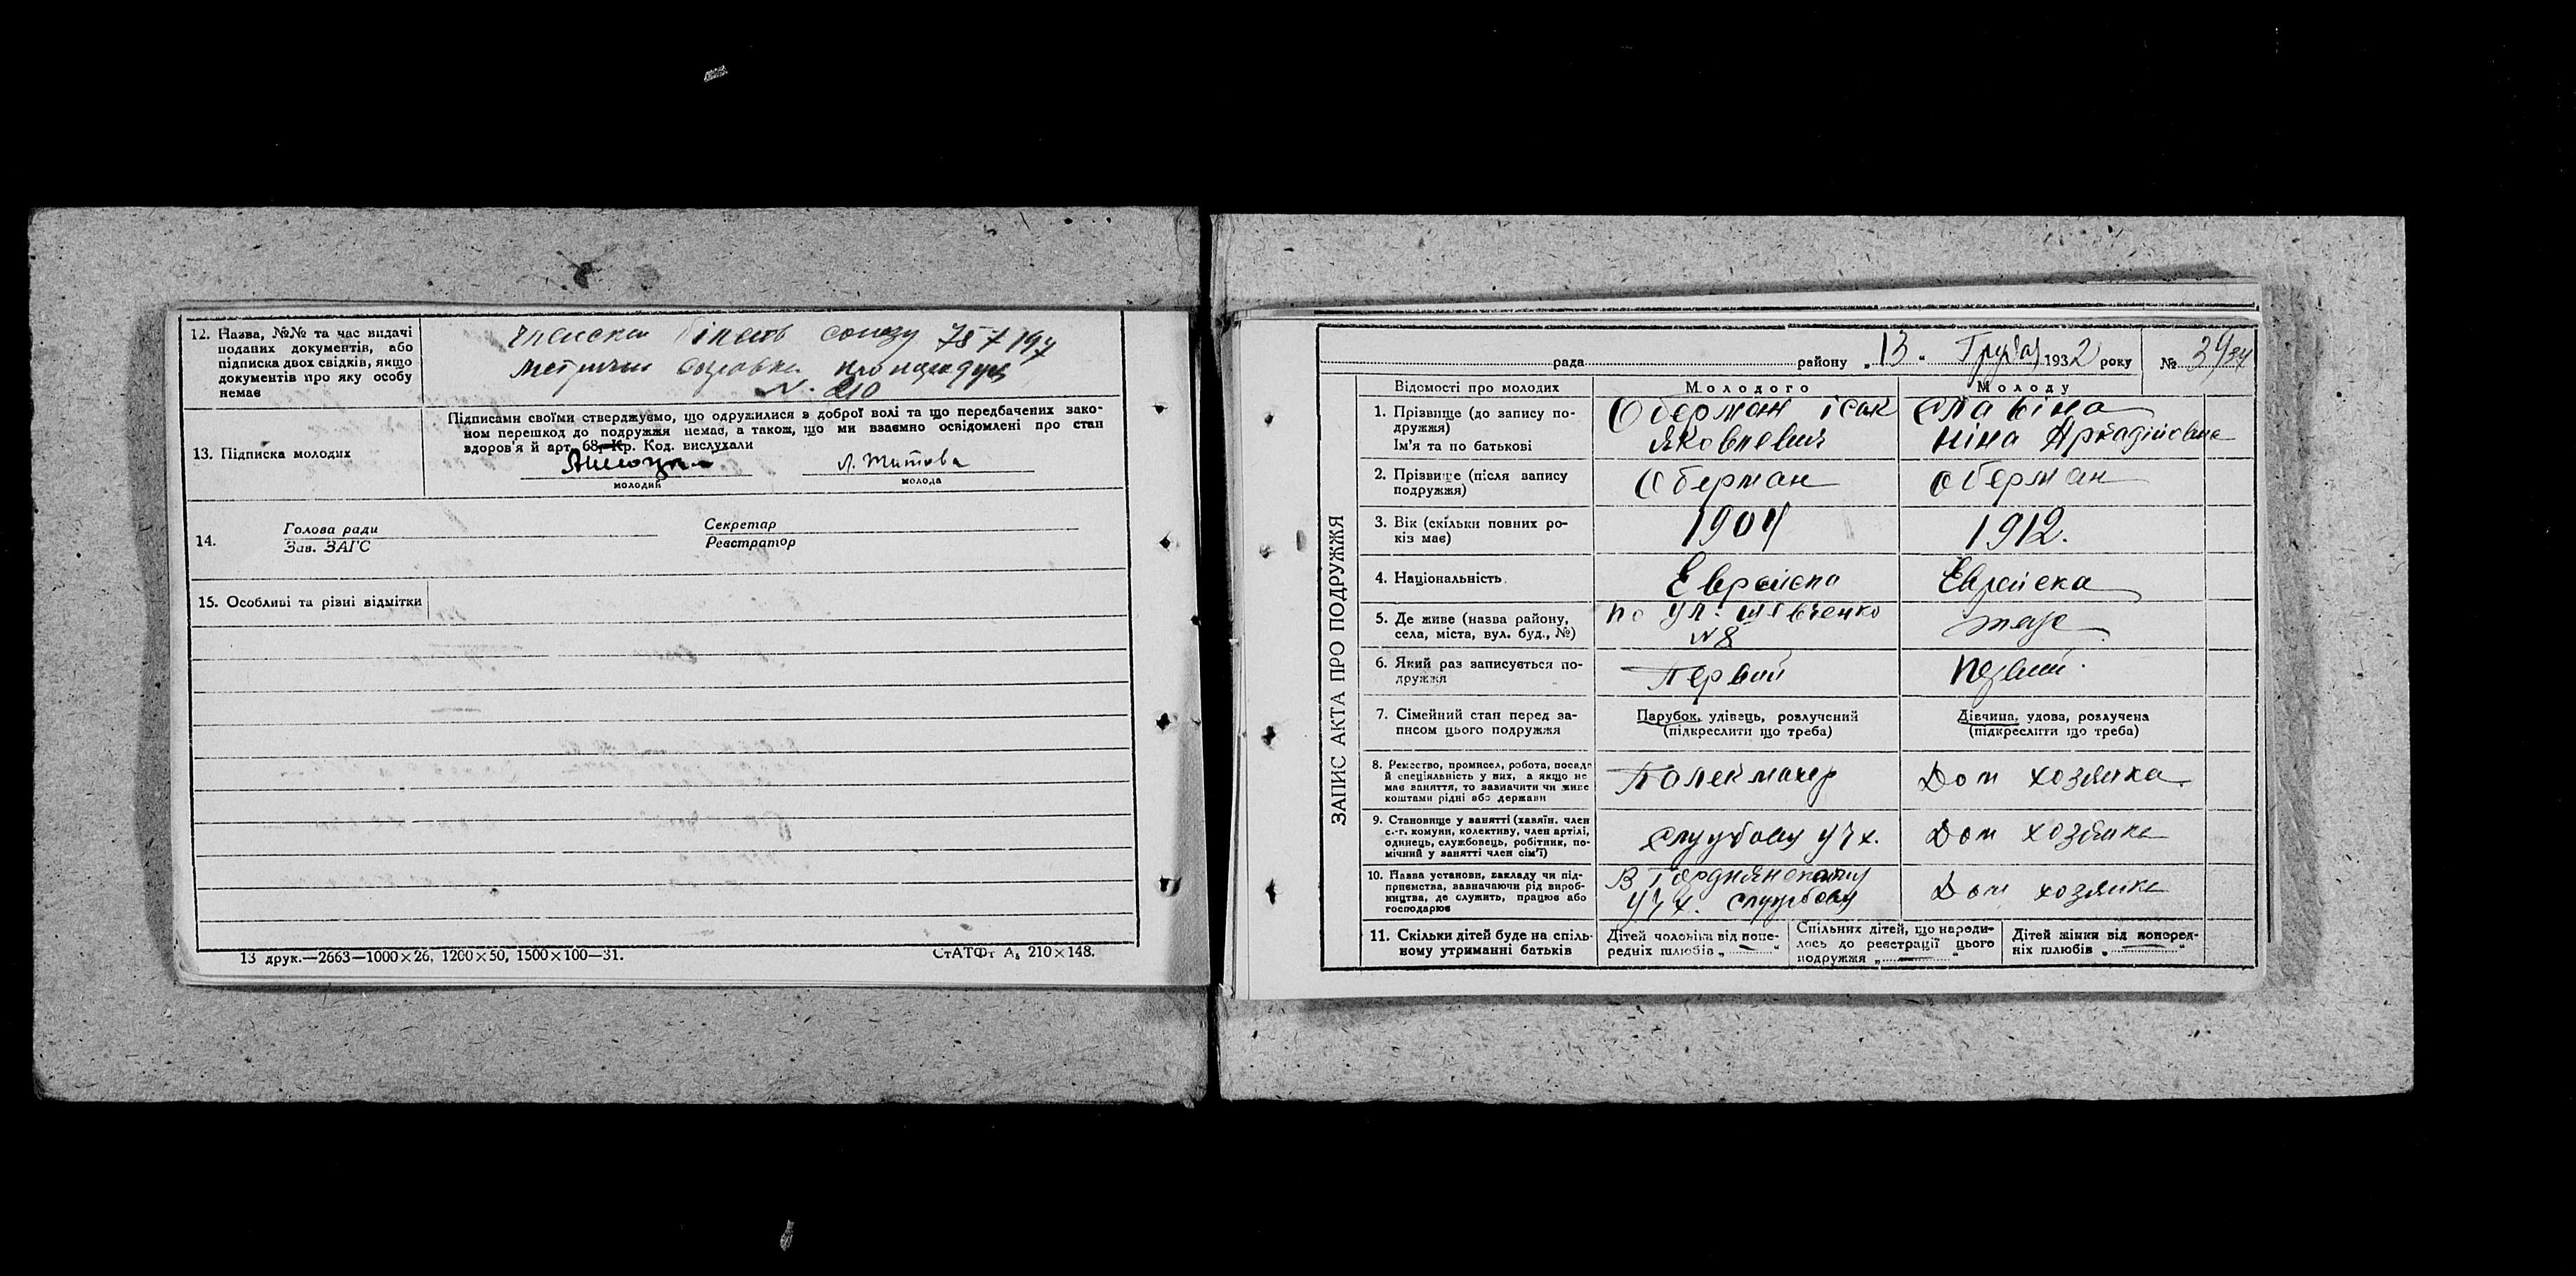 12. Назва, №№ та час видачі
поданих документів, або
підписка двох свідків, якщо
документів про яку особу
немає
союзу
N. 210
13. Підписка молодих
Підписами своїми стверджуємо, що одружилися в доброї волі та що передбачених зако-
ном перешкод до подружжя немає, а також, що ми взаємно освідомлені про стан
здоров'я й арт. 68, Кр. Код. вислухали
молодий
молода
14.
Голова ради
Зав. ЗАГС
Секретар
Реєстратор
15. Особливі та різні відмітки
13 друк.—2663—1000×26, 1200×50, 1500×100—31.
СтАТФт А₅ 210×148.
ЗАПИС АКТА ПРО ПОДРУЖЖЯ
рада району „13„ Грудня 1932 року №
Відомості про молодих
Молодого
Молоду
1. Прізвище (до запису по-
дружжя)
Ім'я та по батькові
Оберман ісак
Яковлевич
Славіна
ніна Аркадійовна
2. Прізвище (після запису
подружжя)
Оберман
Оберман
3. Вік (скільки повних ро-
ків має)
1904
1912.
4. Національність
Еврейска
Еврейска
5. Де живе (назва району,
села, міста, вул. буд., №)
по ул. шевченко
N 8
таже
6. Який раз записується по-
дружжя
Первий
Первий
7. Сімейний стан перед за-
писом цього подружжя
Парубок, удівець, розлучений
(підкреслити що треба)
Дівчина, удова, розлучена
(підкреслити що треба)
8. Ремество, промисел, робота, посада
й спеціяльність у них, а якщо не
має заняття, то зазначити чи живе
коштами рідні або держави
Дом хозяика
9. Становище у занятті (хазяїн. член
с.-г. комуни, колективу, член артілі,
одинець, службовець, робітник, по-
мічний у занятті член сім'ї)
Дом хозяика
10. Назва установи, закладу чи під-
приємства, зазначаючи рід вироб-
ництва, де служить, працює або
господарює
Дом хозяика
11. Скільки дітей буде на спіль-
ному утриманні батьків
Дітей чоловіка від попе-
редніх шлюбів „ — "
Спільних дітей, що народи-
лось до реєстрації цього
подружжя „ — "
Дітей жінки від поперед-
ніх шлюбів „ — "